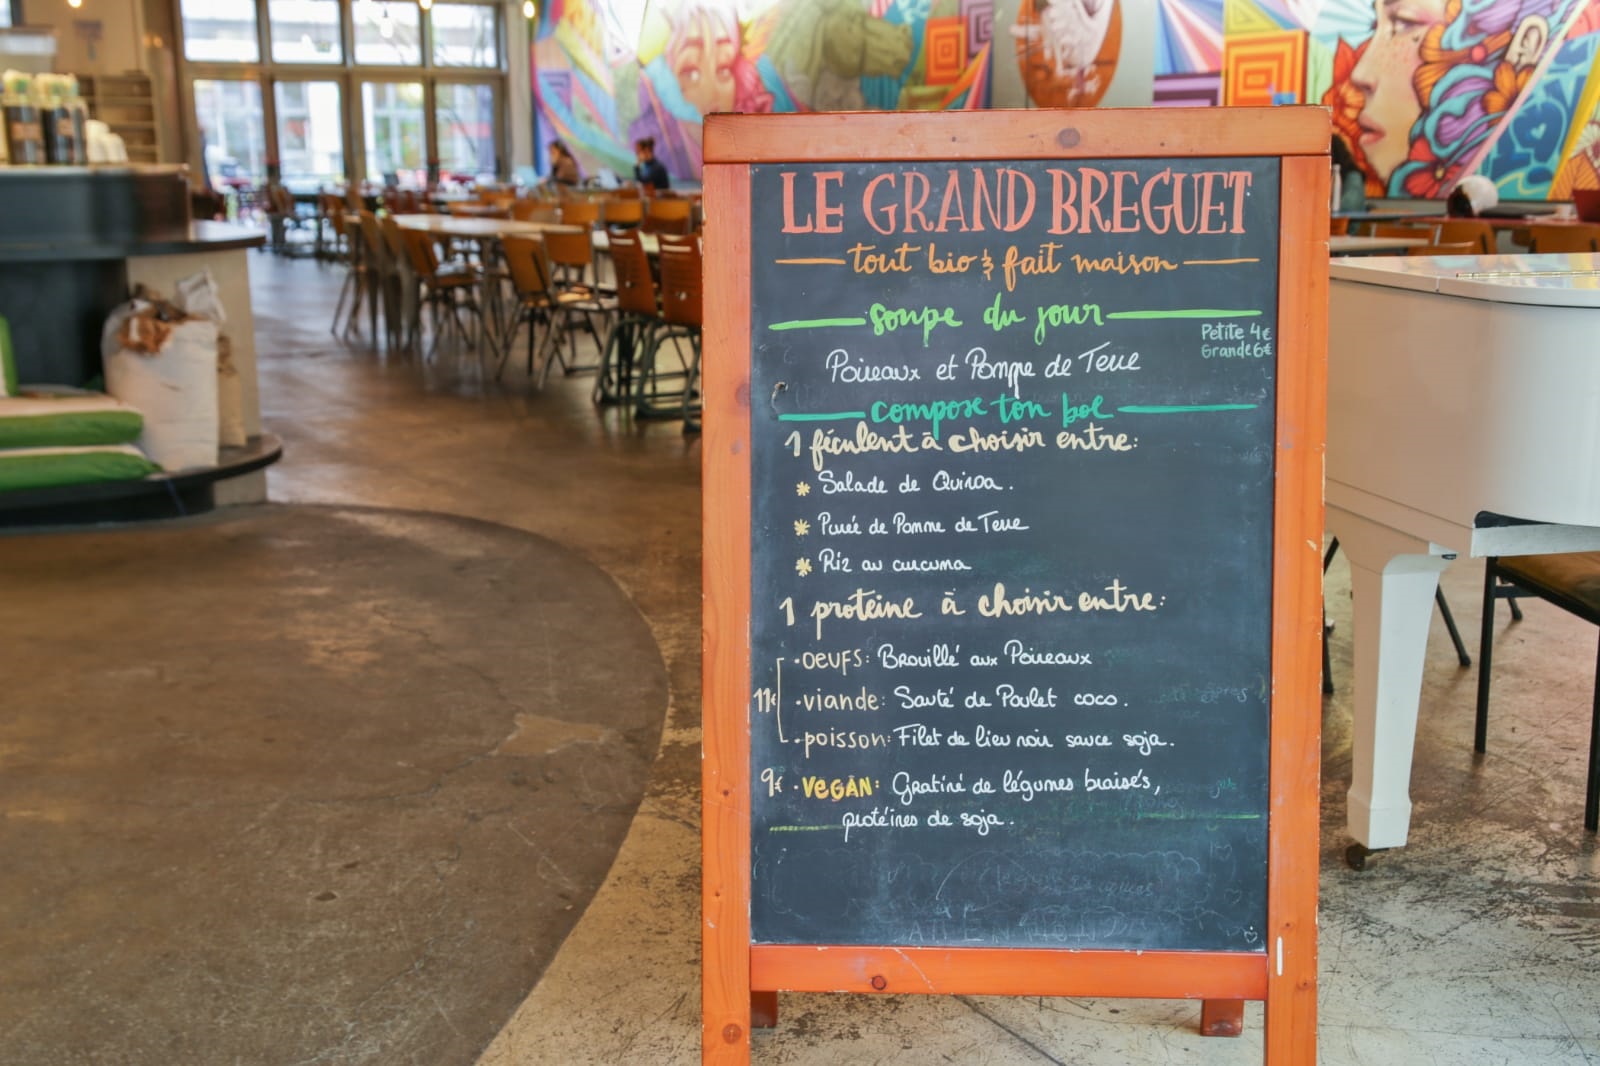 LE GRAND BREGUET
tout bio & fait maison
soupe du jour
Petite 4€
Grande 6€
Poireaux et Pomme de Terre
compose ton bol
1 féculent à choisir entre:
* Salade de Quinoa.
* Purée de Pomme de Terre
* Riz au curcuma
1 proteine à choisir entre:
• OEUFS: Brouillé aux Poireaux
11€ • viande: Sauté de Poulet coco.
• poisson: Filet de lieu noir sauce soja.
9€ • VEGAN: Gratiné de légumes braisés,
protéines de soja.